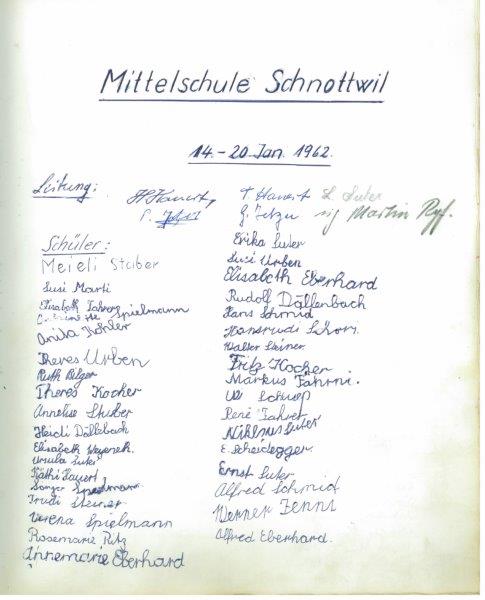 Mittelschule Schnottwil
14.-20. Jan. 1962.
Leitung:
H Hauert,
T. Hauert L. Suter
P.
sig Martin Ryf.
Schüler:
Meieli Stuber
Susi Marti
Elisabeth Fahrer
Spielmann
Anita Kohler
Theres Urben
Ruth
Theres Kocher
Annelise Stuber
Heidi Dällebach
Elisabeth
Ursula Suter
Käthi Hauert
Spielmann
Trudi Steiner
Verena Spielmann
Rosemarie Ritz
Annemarie Eberhard
Erika Suter
Susi Urben
Elisabeth Eberhard
Rudolf Dällenbach
Hans Schmid
Hansrudi
Walter Steiner
Fritz Kocher
Markus Fahrni.
René Fahrer
Niklaus Suter
E. Scheidegger.
Ernst Suter
Alfred Schmid
Werner Jenni
Alfred Eberhard.